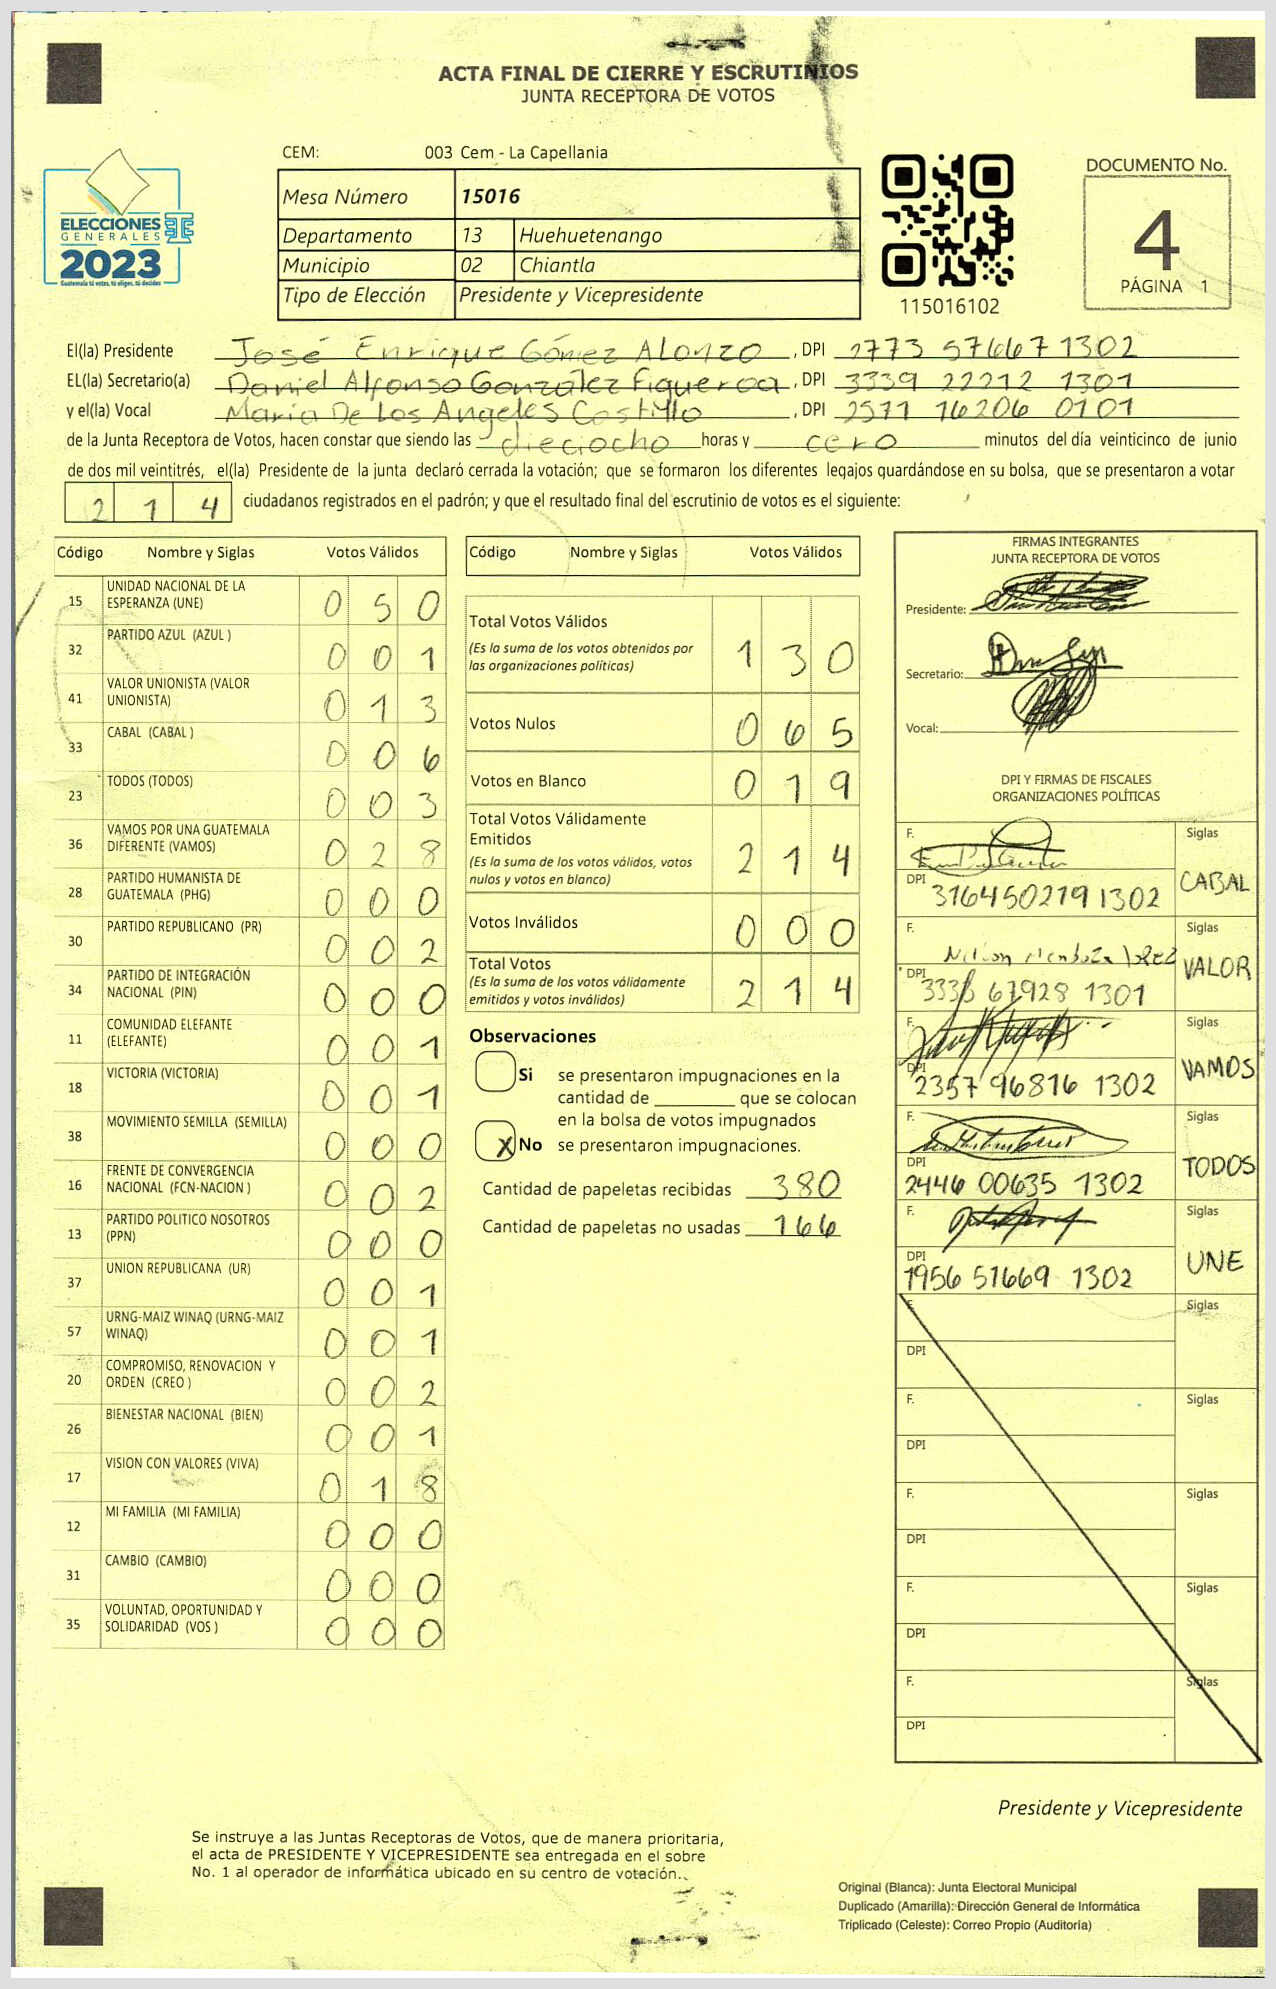 ACTA FINAL DE CIERRE Y ESCRUTINIOS
JUNTA RECEPTORA DE VOTOS
CEM: 003 Cem - La Capellania
ELECCIONES
GENERALES
2023
Guatemala tú votas, tú eliges, tú decides
Mesa Número 15016
Departamento 13 Huehuetenango
Municipio 02 Chiantla
Tipo de Elección Presidente y Vicepresidente
115016102
DOCUMENTO No.
4
PÁGINA 1
El(la) Presidente José Enrique Gómez Alonzo , DPI 2773 57667 1302
EL(la) Secretario(a) Daniel Alfonso González Figueroa , DPI 3339 22212 1301
y el(la) Vocal María De Los Angeles Castillo , DPI 2571 16206 0101
de la Junta Receptora de Votos, hacen constar que siendo las dieciocho horas y cero minutos del día veinticinco de junio
de dos mil veintitrés, el(la) Presidente de la junta declaró cerrada la votación; que se formaron los diferentes legajos quardándose en su bolsa, que se presentaron a votar
2 1 4 ciudadanos registrados en el padrón; y que el resultado final del escrutinio de votos es el siguiente:
Código Nombre y Siglas Votos Válidos
15 UNIDAD NACIONAL DE LA ESPERANZA (UNE) 0 5 0
32 PARTIDO AZUL (AZUL ) 0 0 1
41 VALOR UNIONISTA (VALOR UNIONISTA) 0 1 3
33 CABAL (CABAL ) 0 0 6
23 TODOS (TODOS) 0 0 3
36 VAMOS POR UNA GUATEMALA DIFERENTE (VAMOS) 0 2 8
28 PARTIDO HUMANISTA DE GUATEMALA (PHG) 0 0 0
30 PARTIDO REPUBLICANO (PR) 0 0 2
34 PARTIDO DE INTEGRACIÓN NACIONAL (PIN) 0 0 0
11 COMUNIDAD ELEFANTE (ELEFANTE) 0 0 1
18 VICTORIA (VICTORIA) 0 0 1
38 MOVIMIENTO SEMILLA (SEMILLA) 0 0 0
16 FRENTE DE CONVERGENCIA NACIONAL (FCN-NACION ) 0 0 2
13 PARTIDO POLITICO NOSOTROS (PPN) 0 0 0
37 UNION REPUBLICANA (UR) 0 0 1
57 URNG-MAIZ WINAQ (URNG-MAIZ WINAQ) 0 0 1
20 COMPROMISO, RENOVACION Y ORDEN (CREO ) 0 0 2
26 BIENESTAR NACIONAL (BIEN) 0 0 1
17 VISION CON VALORES (VIVA) 0 1 8
12 MI FAMILIA (MI FAMILIA) 0 0 0
31 CAMBIO (CAMBIO) 0 0 0
35 VOLUNTAD, OPORTUNIDAD Y SOLIDARIDAD (VOS ) 0 0 0
Código Nombre y Siglas Votos Válidos
Total Votos Válidos 1 3 0
(Es la suma de los votos obtenidos por
las organizaciones políticas)
Votos Nulos 0 6 5
Votos en Blanco 0 1 9
Total Votos Válidamente
Emitidos 2 1 4
(Es la suma de los votos válidos, votos
nulos y votos en blanco)
Votos Inválidos 0 0 0
Total Votos 2 1 4
(Es la suma de los votos válidamente
emitidos y votos inválidos)
Observaciones
Si se presentaron impugnaciones en la
cantidad de ________ que se colocan
en la bolsa de votos impugnados
X No se presentaron impugnaciones.
Cantidad de papeletas recibidas 380
Cantidad de papeletas no usadas 166
FIRMAS INTEGRANTES
JUNTA RECEPTORA DE VOTOS
Presidente:
Secretario:
Vocal:
DPI Y FIRMAS DE FISCALES
ORGANIZACIONES POLÍTICAS
F. Siglas
DPI 316450219 1302 CABAL
F. Nelson Mendoza Siglas
DPI 3333 67928 1301 VALOR
F. Siglas
DPI 2357 96816 1302 VAMOS
F. Siglas
DPI 2446 00635 1302 TODOS
F. Siglas
DPI 1956 51669 1302 UNE
F. Siglas
DPI
F. Siglas
DPI
F. Siglas
DPI
F. Siglas
DPI
F. Siglas
DPI
Presidente y Vicepresidente
Se instruye a las Juntas Receptoras de Votos, que de manera prioritaria,
el acta de PRESIDENTE Y VICEPRESIDENTE sea entregada en el sobre
No. 1 al operador de informática ubicado en su centro de votación.
Original (Blanca): Junta Electoral Municipal
Duplicado (Amarilla): Dirección General de Informática
Triplicado (Celeste): Correo Propio (Auditoría)